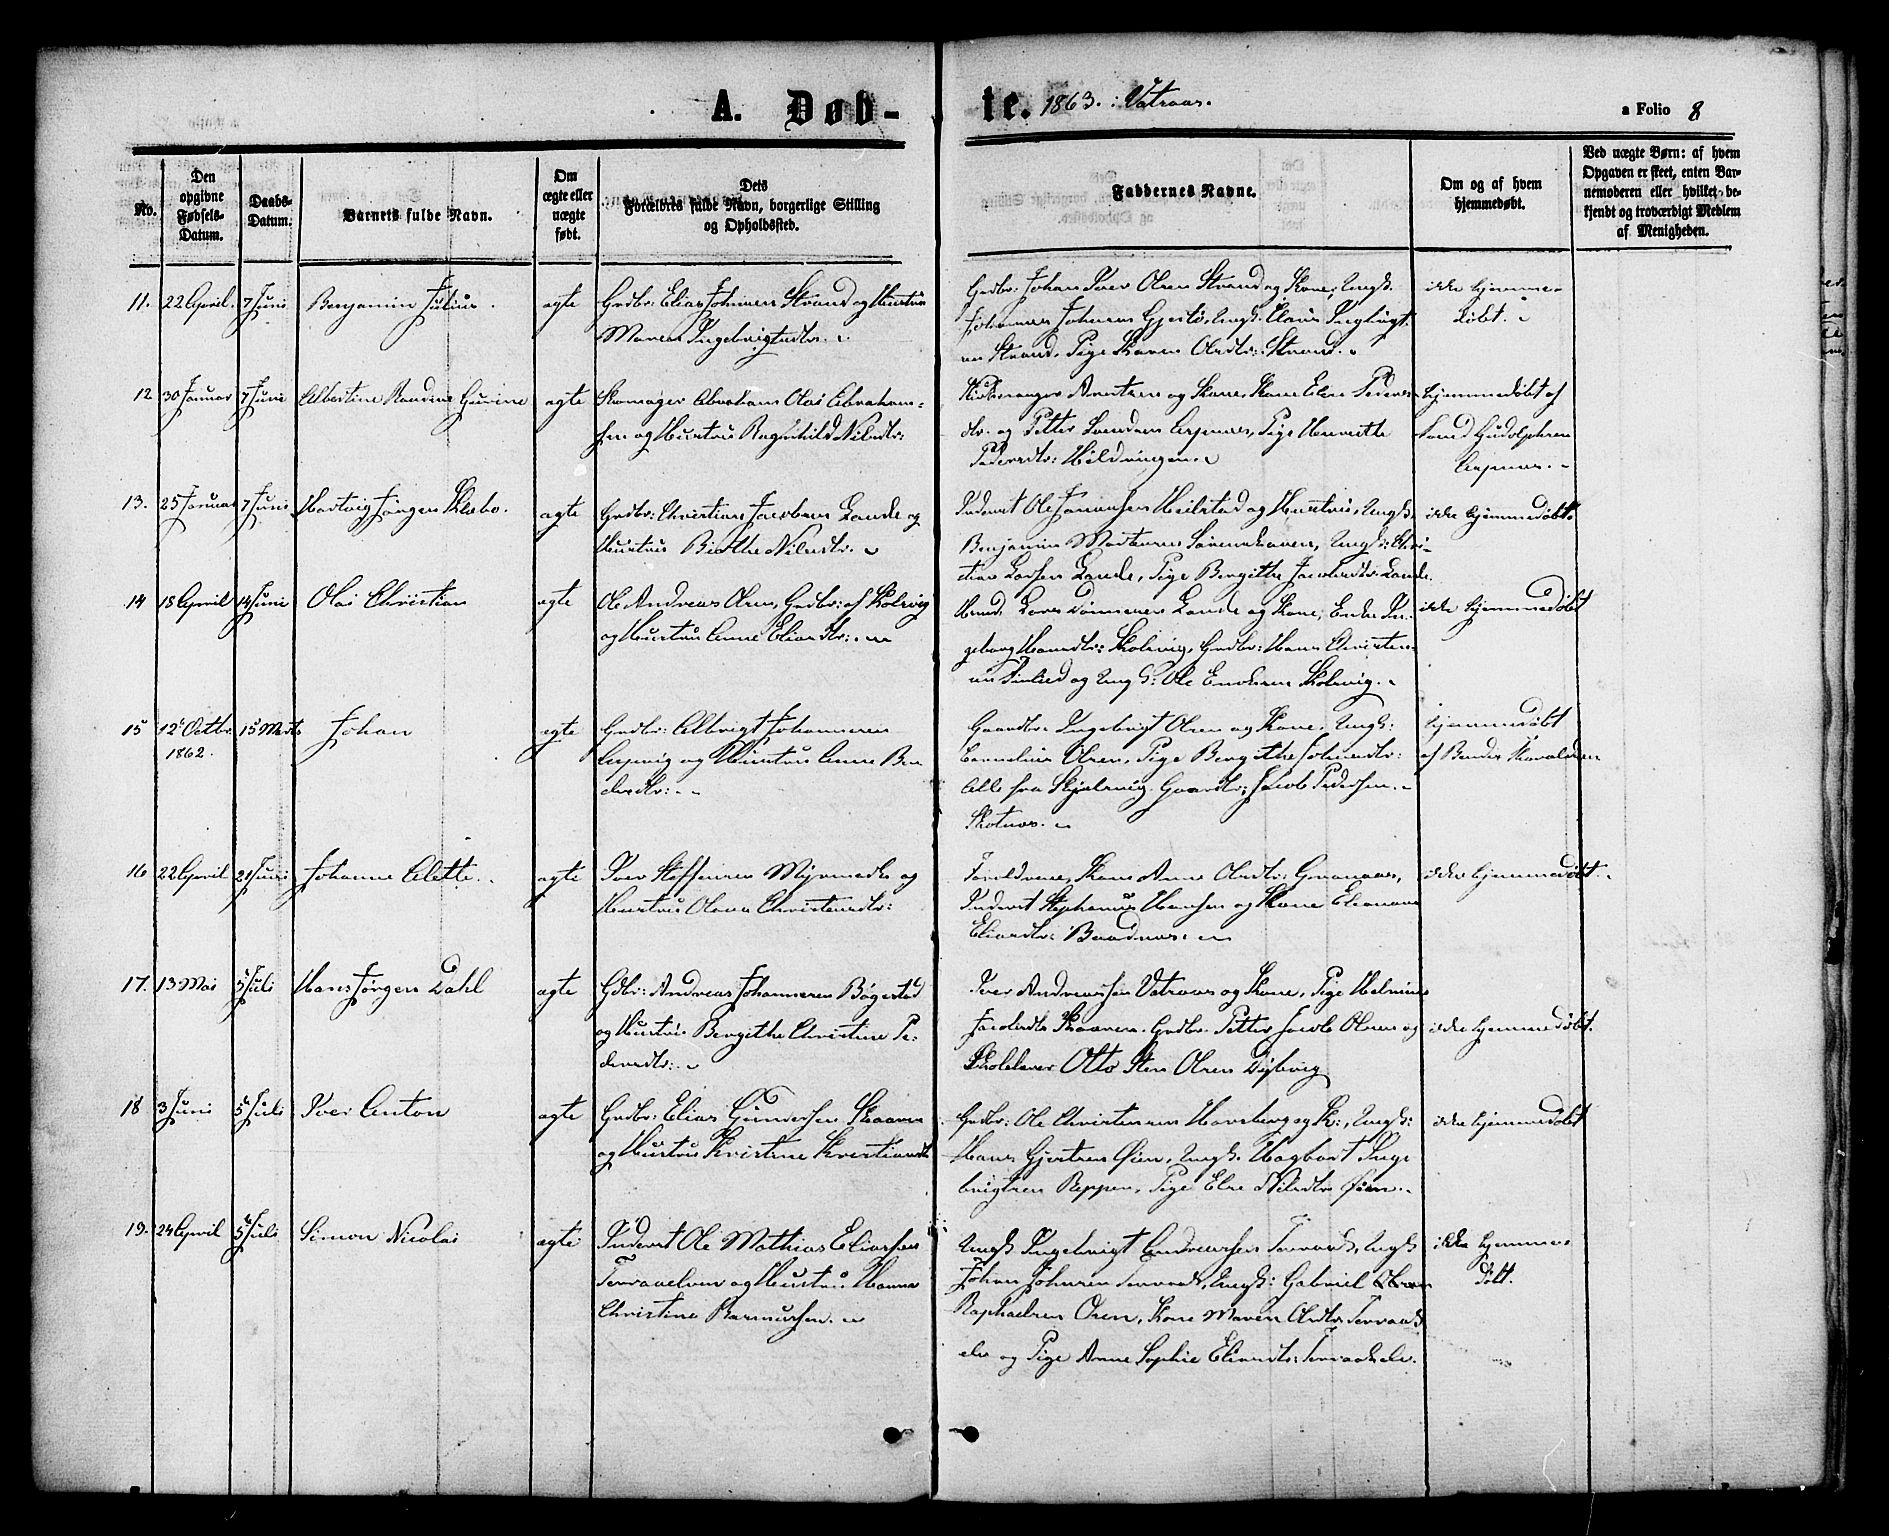 A. Døb-te. 1863. Vatraas.
a Folio 8
No.
Den opgivne Fødsels-Datum.
Daabs-Datum.
Barnets fulde Navn.
Om ægte eller uægte født.
Dets Forældres fulde Navn, borgerlige Stilling og Opholdssted.
Faddernes Navne.
Om og af hvem hjemmedøbt.
Ved uægte Børn: af hvem Opgaven er skeet, enten Barnemoderen eller hvilket bekjendt og troværdigt Medlem af Menigheden.
11. 22 April. 7 Juni Benjamin Julius. ægte Grdbr: Elias Johnsen Strand og Hustru
Maren Ingebrigtsdtr.
Grdbr: Johan Iver Olsen Strand og Kone, Ungk.
Johannes Johnsen Gjestø, Ungk. Claus Ingbrigt-
sen Strand, Pige Karen Olsdtr: Strand.
ikke hjemme-
døbt.
12 30 Januar 7 Juni Albertine Randine Gurine ægte Skomager Abraham Olai Abraham-
sen og Hustru Ragnhild Nilsdtr:
Kirkesanger Arentsen og Kone, Kone Elen Peders-
dtr. og Petter Svendsen Aspnæs, Pige
Pedersdtr: Hildringen.
hjemmedøbt af
Svend Gudolphsen
Aspnæs.
13. 25 Januar 7 Juni Hartvig Jørgen Klæbo. ægte Grdbr: Christian Jacobsen Lande og
Hustru Birthe Nilsdtr.
Inderst Ole Johansen Heilstad og Hustru, Ungk.
Benjamin Mortensen Sørenskaaren, Ungk: Chri-
stian Larsen Lande, Pige Bergithe Jacobsdtr: Lande.
ikke hjemmedøbt.
14 18 April 14 Juni Olai Christian ægte Ole Andreas Olsen, Grdbr: af Skolvig
og Hustru Anne Eliasdtr:
Lars Lande og Kone, Enke In-
geborg Hansdtr: Skolvig, Grdbr: Hans Christen-
sen og Ungk: Ole Skolvig.
ikke hjemmedøbt
15 12 Octbr. 1862. 15 Marts Johan ægte Grdbr: Albrigt Johannesen
og Hustru Anne Ben-
Gaardbr. Ingebrigt Olsen og Kone, Ungk:
Cornelius Olsen, Pige Bergithe Johnsdtr:
Alle fra Skjelvig. Gaardbr: Jacob Pedersen
Skotnæs.
hjemmedøbt
af
16 22 April 21 Juni Johanne Alette. ægte Iver Steffensen og
Hustru Olava Christensdtr:
Forældrene, Kone Anne Olsdtr: Grannæs,
Inderst Stephanus Hansen og Kone Elenora
Eliasdtr:
ikke hjemmedøbt.
17. 13 Mai 5 Juli Hans Jørgen Dahl ægte Gdbr: Andreas Johannesen Bøgestad
og Hustru Bergithe Christine Pe-
dersdtr:
Iver Andreassen Vatraas og Kone, Pige
Jacobsdtr. Skaaren. Grdbr. Petter Jacob Olsen og
Skolelærer Otto Sten Olsen Dybvig
ikke hjemmedøbt.
18 3 Juni 5 Juli Iver Anton ægte Grdbr: Elias Gundersen Skaaren
og Hustru Kristine Kristiansdtr
Grdbr: Ole Christensen Hornsberg og K:, Ungk:
Hans Gjertsen Øien, Ungk. Hagbart Inge-
brigtsen Reppen, Pige Else Nilsdtr Øien.
ikke hjemmedøbt
19. 24 April 5 Juli Simon Nicolai ægte Inderst Ole Mathias Eliassen
og Hustru Hanna
Christine
Ungk Ingebrigt Andreassen Terraak, Ungk
Johan Johnsen Terraak, Ungk: Gabriel
Raphaelsen Osen, Kone Maren Olsdtr: Terraak-
elv og Pige Anne Sophie Eliasdtr: Terraakelv.
ikke hjemme-
døbt.